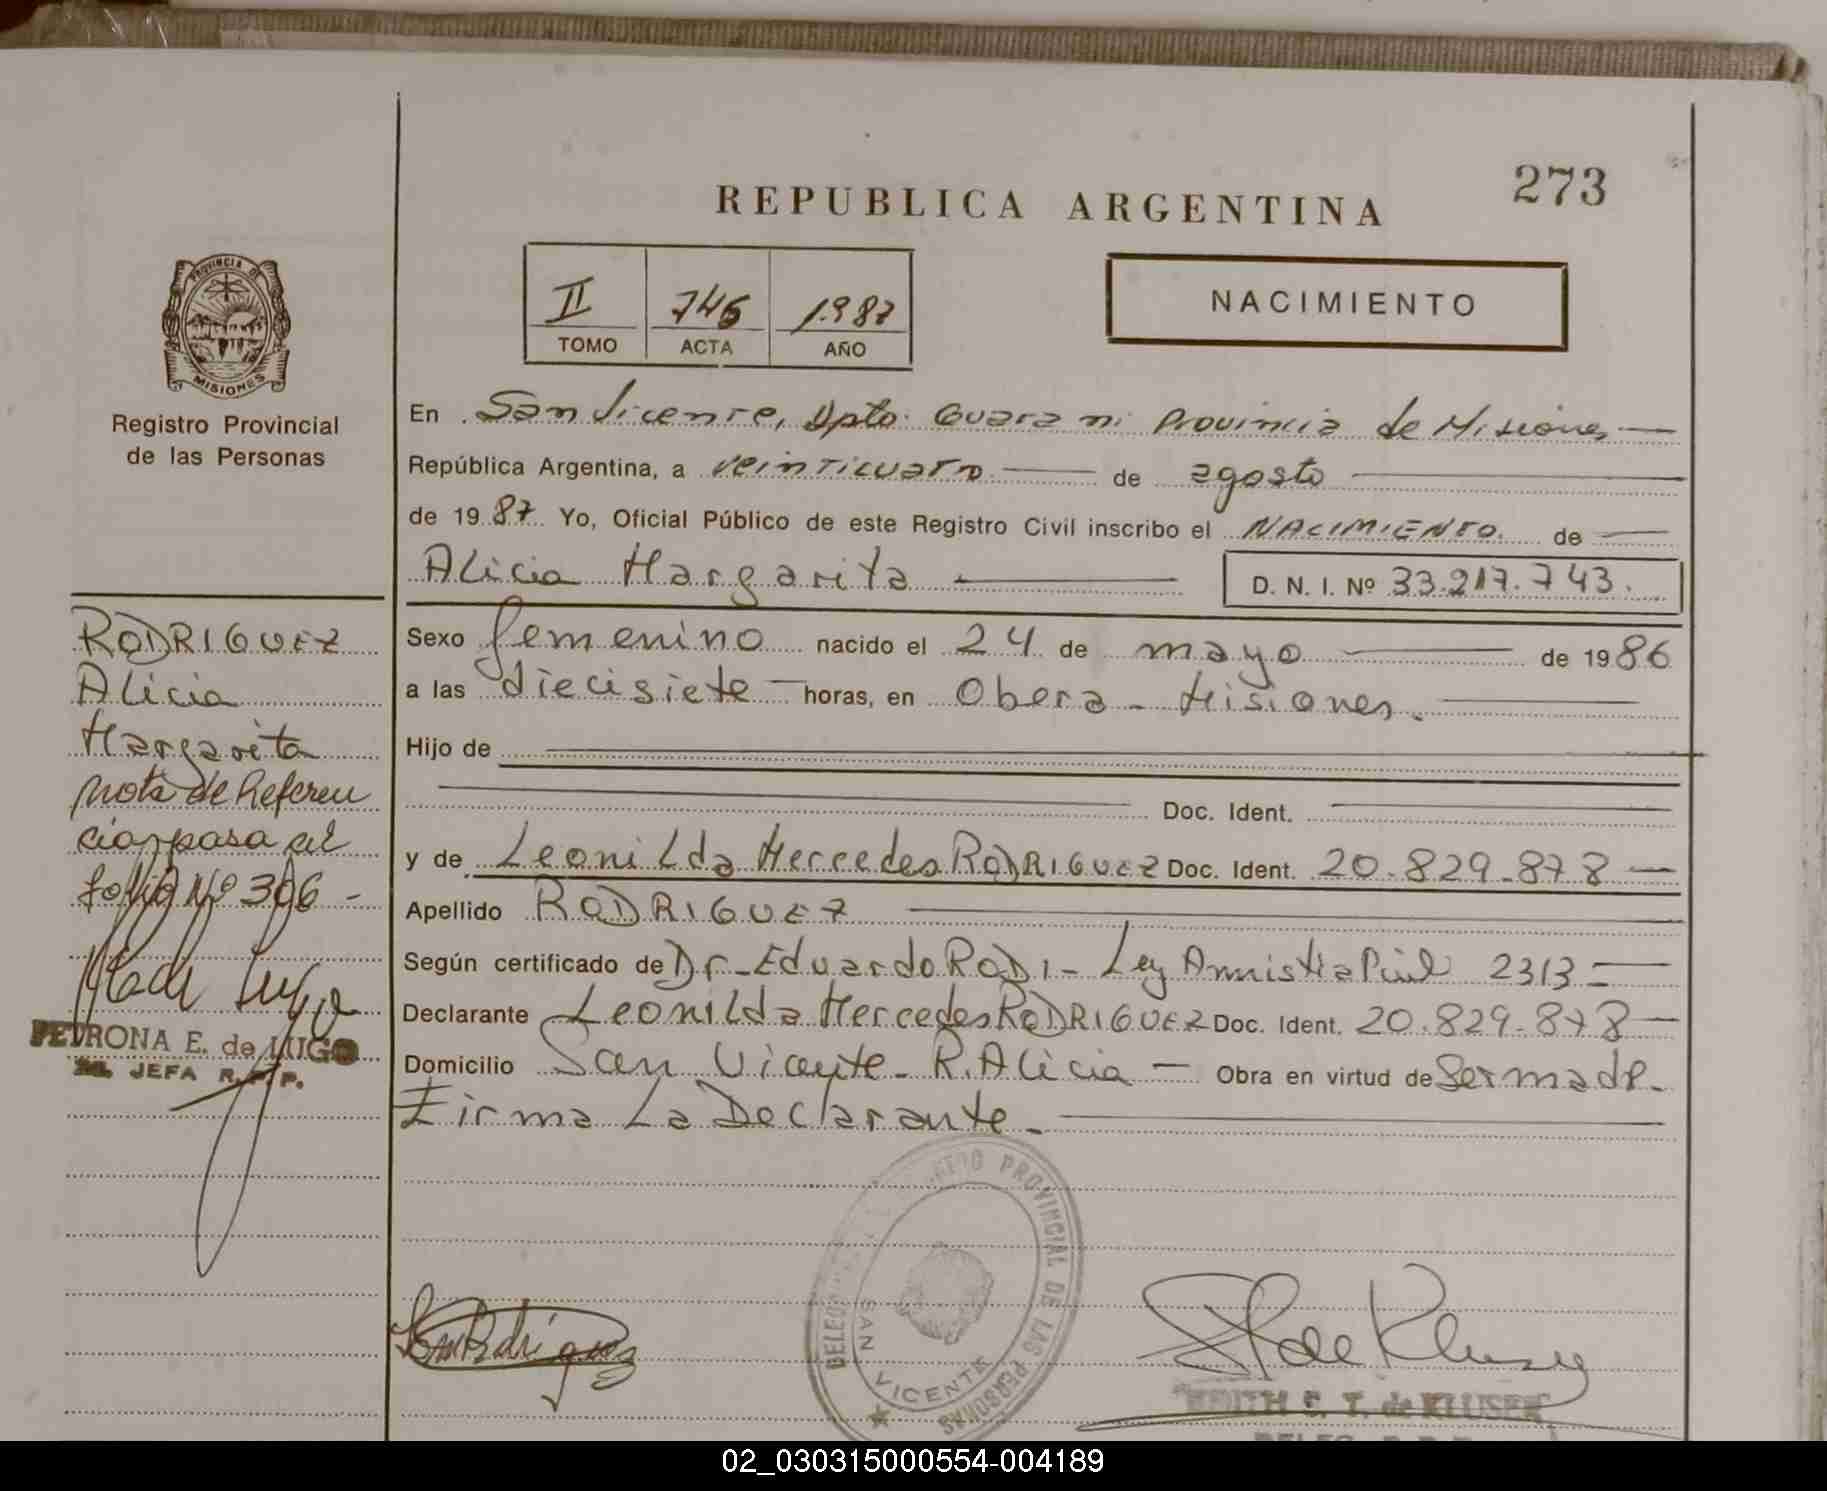 273
REPUBLICA ARGENTINA
II 746 1987
TOMO ACTA AÑO
NACIMIENTO
PROVINCIA DE
MISIONES
Registro Provincial
de las Personas
En San Vicente, Dpto. Guarani Provincia de Misiones
República Argentina, a veinticuatro de agosto
de 1987 Yo, Oficial Público de este Registro Civil inscribo el NACIMIENTO. de
Alicia Margarita D. N. I. Nº 33.217.743.
Sexo femenino nacido el 24 de mayo de 1986
a las diecisiete horas, en Obera - Misiones.
Hijo de
Doc. Ident.
y de Leonilda Mercedes RODRIGUEZ Doc. Ident. 20.829.878
Apellido RODRIGUEZ
Según certificado de Dr. Eduardo RODI - Ley Amnistia 2313
Declarante Leonilda Mercedes RODRIGUEZ Doc. Ident. 20.829.878
Domicilio San Vicente - R. Alicia Obra en virtud de Ser madre.
Firma La Declarante.
RODRIGUEZ
Alicia
Margarita
Nota de Referen
cia pasa al
folio Nº 306 -
PETRONA E. de LUGO
JEFA R. P. P.
REGISTRO PROVINCIAL DE LAS PERSONAS
SAN VICENTE
EDITH E. T. de KLUSER
02_030315000554-004189